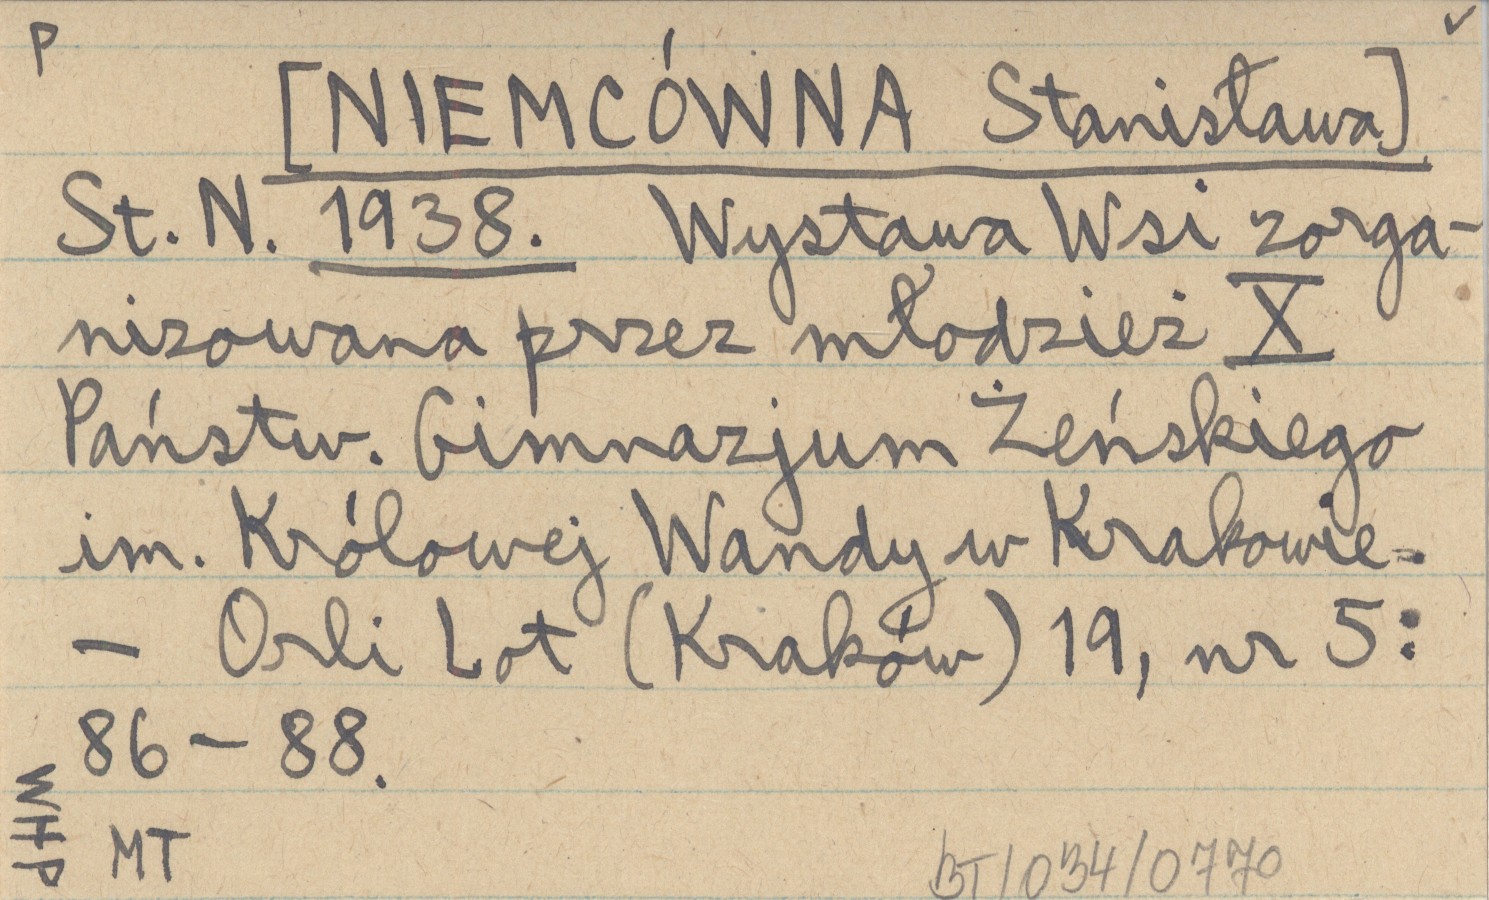 P ✓
[NIEMCÓWNA Stanisława]
St. N. 1938. Wystawa Wsi zorga-
nizowana przez młodzież X
Państw. Gimnazjum Żeńskiego
im. Królowej Wandy w Krakowie.
— Orli Lot (Kraków) 19, nr 5:
86 – 88.
WHP
MT
BT/034/0770